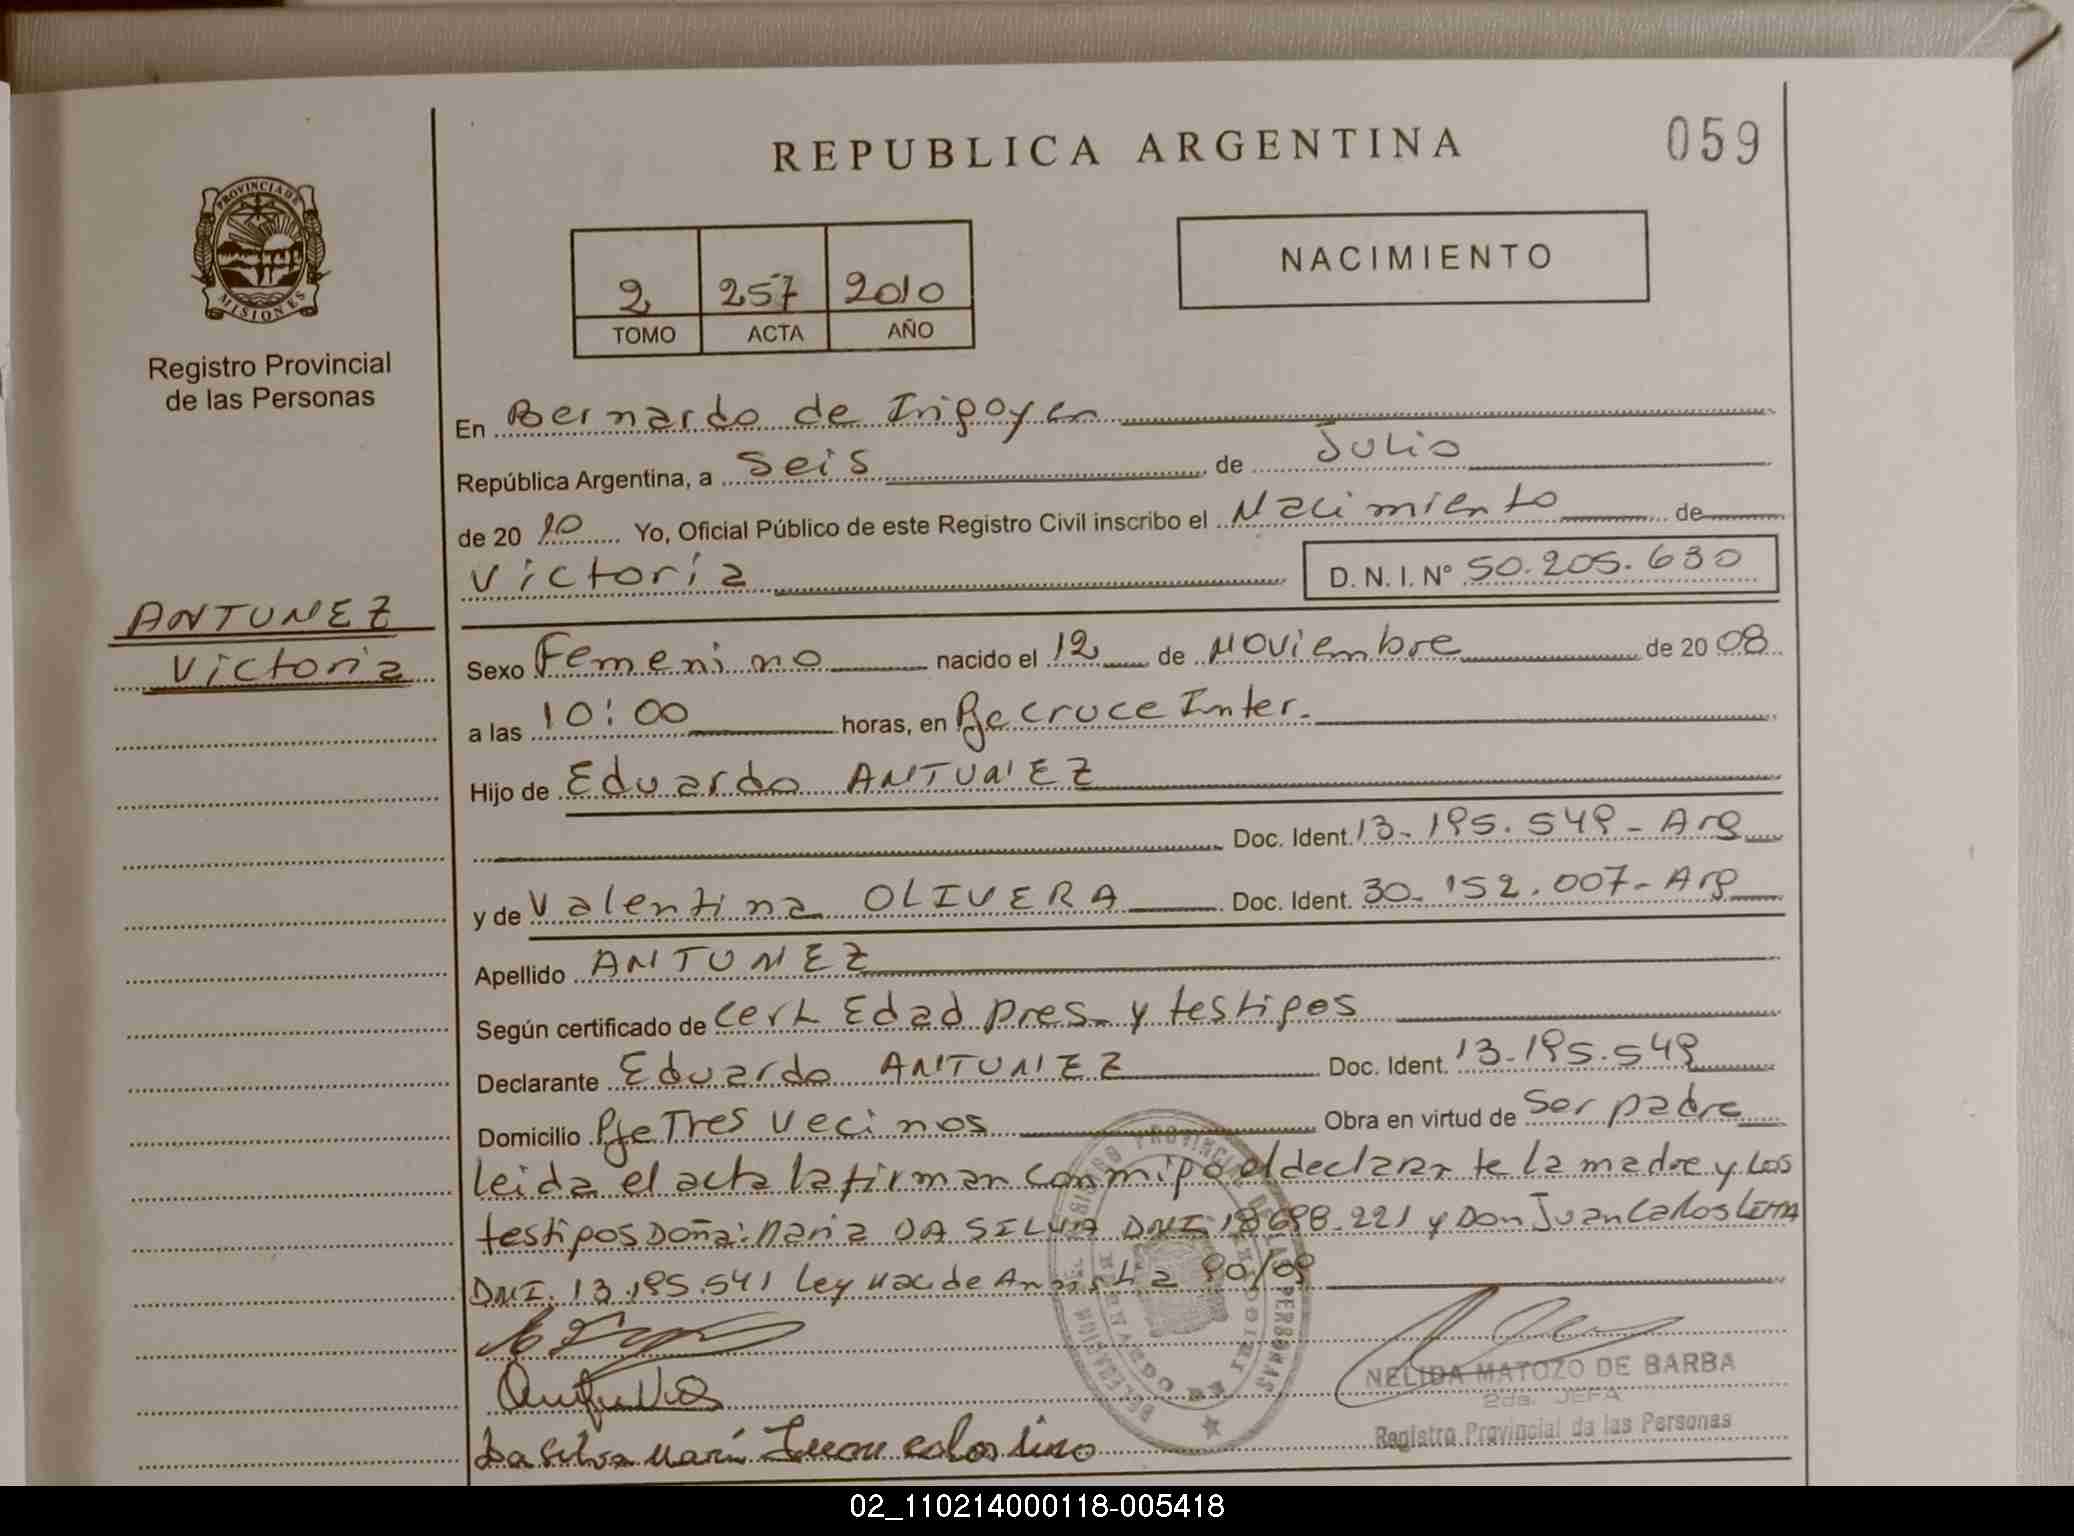 REPUBLICA ARGENTINA
059
PROVINCIA DE
MISIONES
Registro Provincial
de las Personas
2 257 2010
TOMO ACTA AÑO
NACIMIENTO
En Bernardo de Irigoyen
República Argentina, a seis de Julio
de 20 10 Yo, Oficial Público de este Registro Civil inscribo el Nacimiento de
Victoria D. N. I. Nº 50.205.630
ANTUNEZ
Victoria
Sexo Femenino nacido el 12 de Noviembre de 20 08
a las 10:00 horas, en Pje cruce Inter.
Hijo de Eduardo ANTUNEZ
Doc. Ident. 13.195.549 - Arg
y de Valentina OLIVERA Doc. Ident. 30.152.007 - Arg
Apellido ANTUNEZ
Según certificado de cert Edad pres. y testigos
Declarante Eduardo ANTUNEZ Doc. Ident. 13.195.549
Domicilio Pje Tres Vecinos Obra en virtud de Ser padre
leida el acta la firman conmigo el declarante la madre y los
testigos Doña: Maria DA SILVA DNI: 18.698.221 y Don Juan Carlos
DNI. 13.195.541 Ley Nac. de Amnistia 90/09
NELIDA MATOZO DE BARBA
2da. JEFA
Registro Provincial de las Personas
Da Silva
02_110214000118-005418